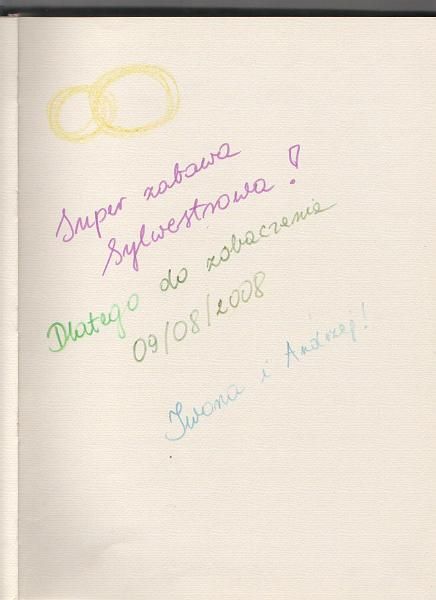 Super zabawa
Sylwestrowa!
Dlatego do zobaczenia
09/08/2008
Iwona i Andrzej!